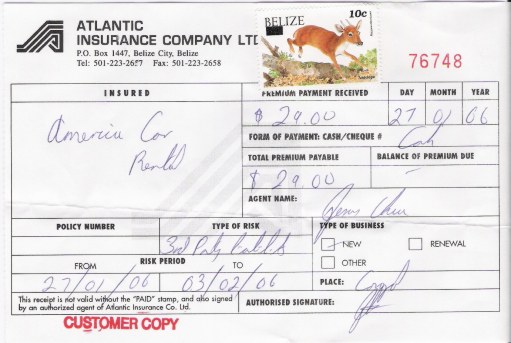 ATLANTIC
INSURANCE COMPANY LTD
P.O. Box 1447, Belize City, Belize
Tel: 501-223-2657 Fax: 501-223-2658
BELIZE 10c
76748
INSURED
America Car
Rental
PREMIUM PAYMENT RECEIVED
$ 29.00
DAY MONTH YEAR
27 01 06
FORM OF PAYMENT: CASH/CHEQUE # Cash
TOTAL PREMIUM PAYABLE
$ 29.00
BALANCE OF PREMIUM DUE
-
AGENT NAME:
POLICY NUMBER
TYPE OF RISK
3rd Party
TYPE OF BUSINESS
NEW
RENEWAL
OTHER
RISK PERIOD
FROM TO
27/01/06 03/02/06
PLACE:
This receipt is not valid without the "PAID" stamp, and also signed
by an authorized agent of Atlantic Insurance Co. Ltd.
AUTHORISED SIGNATURE:
CUSTOMER COPY